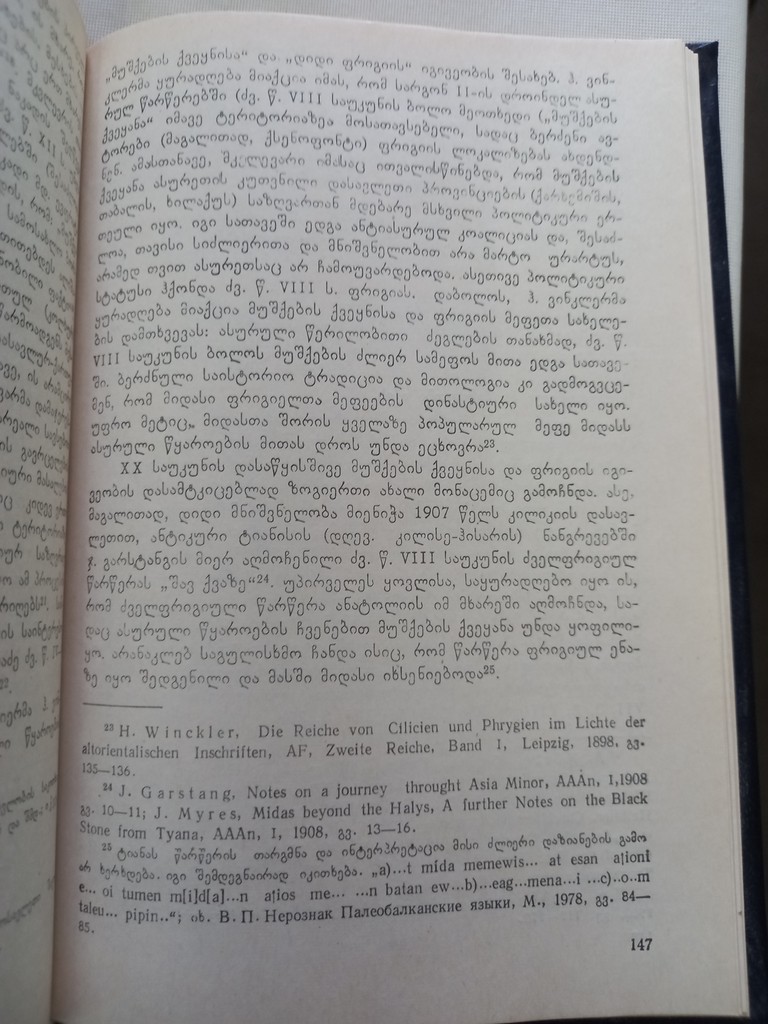 „მუშქების ქვეყნისა“ და „დიდი ფრიგიის“ იგივეობის შესახებ. ჰ. ვინ-
კლერმა ყურადღება მიაქცია იმას, რომ სარგონ II-ის დროინდელ ასუ-
რულ წარწერებში (ძვ. წ. VIII საუკუნის ბოლო მეოთხედი („მუშქების
ქვეყანა“ იმავე ტერიტორიაზეა მოსათავსებელი, სადაც ბერძენი ავ-
ტორები (მაგალითად, ქსენოფონტი) ფრიგიის ლოკალიზებას ახდენდ-
ნენ. ამასთანავე, მკვლევარი იმასაც ითვალისწინებდა, რომ მუშქების
ქვეყანა ასურეთის კუთვნილი დასავლეთი პროვინციების (ქარხემიშის,
თაბალის, ხილაქუს) საზღვართან მდებარე მსხვილი პოლიტიკური ერ-
თეული იყო. იგი სათავეში ედგა ანტიასურულ კოალიციას და, შესაძ-
ლოა, თავისი სიძლიერითა და მნიშვნელობით არა მარტო ურარტუს,
არამედ თვით ასურეთსაც არ ჩამოუვარდებოდა. ასეთივე პოლიტიკური
სტატუსი ჰქონდა ძვ. წ. VIII ს. ფრიგიას. დაბოლოს, ჰ. ვინკლერმა
ყურადღება მიაქცია მუშქების ქვეყნისა და ფრიგიის მეფეთა სახელე-
ბის დამთხვევას: ასურული წერილობითი ძეგლების თანახმად, ძვ. წ.
VIII საუკუნის ბოლოს მუშქების ძლიერ სამეფოს მითა ედგა სათავე-
ში. ბერძნული საისტორიო ტრადიცია და მითოლოგია კი გადმოგვცე-
მენ, რომ მიდასი ფრიგიელთა მეფეების დინასტიური სახელი იყო.
უფრო მეტიც„ მიდასთა შორის ყველაზე პოპულარულ მეფე მიდასს
ასურული წყაროების მითას დროს უნდა ეცხოვრა²³.
XX საუკუნის დასაწყისშივე მუშქების ქვეყნისა და ფრიგიის იგი-
ვეობის დასამტკიცებლად ზოგიერთი ახალი მონაცემიც გამოჩნდა. ასე,
მაგალითად, დიდი მნიშვნელობა მიენიჭა 1907 წელს კილიკიის დასავ-
ლეთით, ანტიკური ტიანისის (დღევ. კილისე-ჰისარის) ნანგრევებში
ჯ. გარსტანგის მიერ აღმოჩენილი ძვ. წ. VIII საუკუნის ძველფრიგიულ
წარწერას „შავ ქვაზე“²⁴. უპირველეს ყოვლისა, საყურადღებო იყო ის,
რომ ძველფრიგიული წარწერა ანატოლიის იმ მხარეში აღმოჩნდა, სა-
დაც ასურული წყაროების ჩვენებით მუშქების ქვეყანა უნდა ყოფილი-
ყო. არანაკლებ საგულისხმო ჩანდა ისიც, რომ წარწერა ფრიგიულ ენა-
ზე იყო შედგენილი და მასში მიდასი იხსენიებოდა²⁵.
²³ H. Winckler, Die Reiche von Cilicien und Phrygien im Lichte der
altorientalischen Inschriften, AF, Zweite Reiche, Band I, Leipzig, 1898, გვ.
135—136.
²⁴ J. Garstang, Notes on a journey throught Asia Minor, AAAn, I,1908
გვ. 10—11; J. Myres, Midas beyond the Halys, A further Notes on the Black
Stone from Tyana, AAAn, I, 1908, გვ. 13—16.
²⁵ ტიანას წარწერის თარგმნა და ინტერპრეტაცია მისი ძლიერი დაზიანების გამო
არ ხერხდება. იგი შემდეგნაირად იკითხება. „a)...t mida memewis... at esan aționi
e... oi tumen m[i]d[a]...n ațios me... ...n batan ew...b)...eag...mena...i ...c)..o..m
taleu... pipin..“; იხ. В. П. Нерознак Палеобалканские языки, М., 1978, გვ. 84—
85.
147